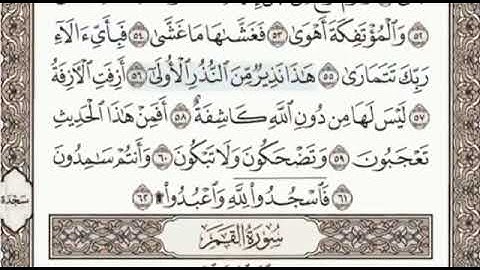 ۝٥٢ وَٱلْمُؤْتَفِكَةَ أَهْوَىٰ ۝٥٣ فَغَشَّىٰهَا مَا غَشَّىٰ ۝٥٤ فَبِأَيِّ ءَالَآءِ
رَبِّكَ تَتَمَارَىٰ ۝٥٥ هَٰذَا نَذِيرٌ مِّنَ ٱلنُّذُرِ ٱلْأُولَىٰٓ ۝٥٦ أَزِفَتِ ٱلْآزِفَةُ
۝٥٧ لَيْسَ لَهَا مِن دُونِ ٱللَّهِ كَاشِفَةٌ ۝٥٨ أَفَمِنْ هَٰذَا ٱلْحَدِيثِ
تَعْجَبُونَ ۝٥٩ وَتَضْحَكُونَ وَلَا تَبْكُونَ ۝٦٠ وَأَنتُمْ سَٰمِدُونَ
۝٦١ فَٱسْجُدُوا۟ لِلَّهِ وَٱعْبُدُوا۟ ۩ ۝٦٢
سَجْدَة
سُورَةُ القَمَرِ